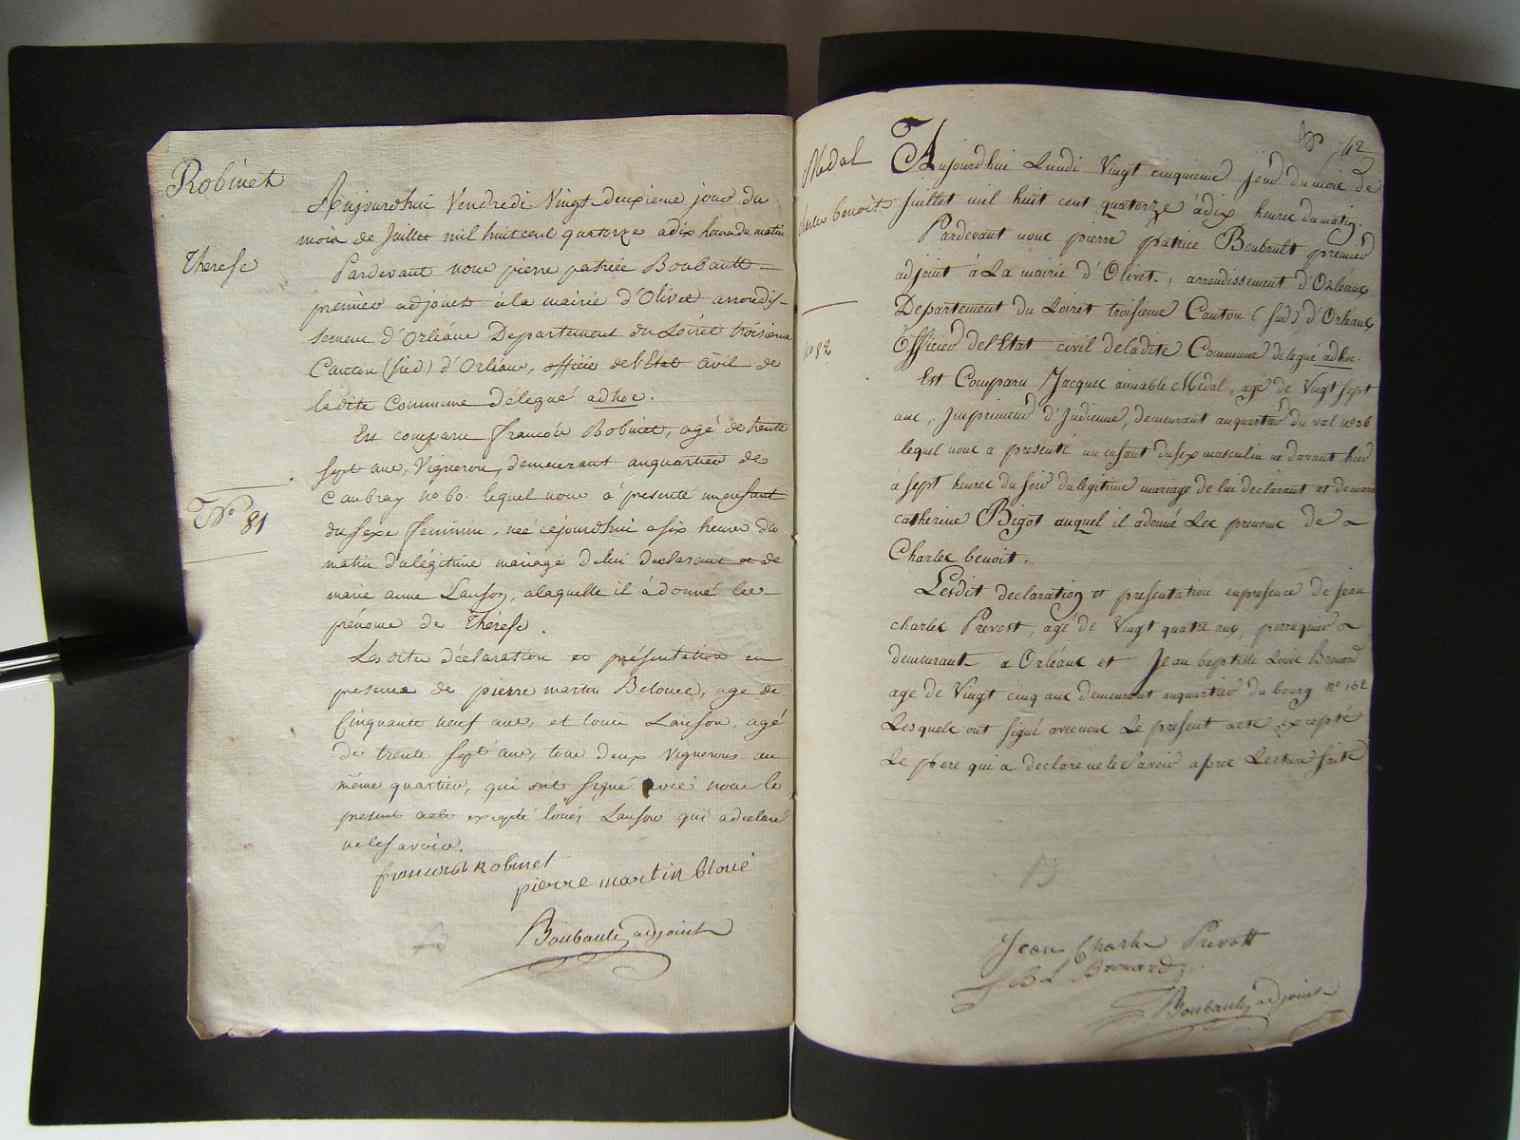 Robinet
Therese
N° 81
Aujourdhui Vendredi Vingt deuxieme jour du
mois de Juillet mil huit cent quatorze a dix heures du matin
Pardevant nous pierre patrice Boubault
premier adjoint à la mairie d'Olivet arrondis-
sement d'Orléans Departement du Loiret troisieme
Canton (sud) d'Orléans, officier de l'Etat Civil de
ladite Commune délégué adhoc.
Est comparu francois Robinet, agé de trente
sept ans, Vigneron, demeurant au quartier de
Caubray no 60. lequel nous à presenté un enfant
du sexe feminin, née cejourdhui a six heures du
matin du légitime mariage de lui declarant et de
marie anne Lanson, a laquelle il à donné les
prénoms de Thérèse.
Les dites déclaration et présentation en
presence de pierre martin Beloues, agé de
Cinquante neuf ans, et louis Lanson agé
de trente sept ans, tous deux Vignerons au
même quartier, qui ont signé avec nous le
present acte excepté louis Lanson qui a declaré
ne le savoir.
francois Robinet
pierre martin bloué
Boubault adjoint
42
Medal
Charles benoit
no 82
Aujourdhui Lundi Vingt cinquieme jour du mois de
Juillet mil huit cent quatorze à dix heures du matin.
Pardevant nous pierre patrice Boubault premier
adjoint à La mairie d'Olivet, arrondissement d'Orléans
Departement du Loiret troisieme Canton (sud) d'Orleans
Officier de l'Etat civil de ladite Commune delegué adhoc.
Est Comparu Jacques aimable Medal, agé de Vingt sept
ans, Imprimeur d'Indienne, demeurant au quartier du val no 26
lequel nous a presenté un enfant du sex masculin ne davant hier
a sept heures du soir du legitime mariage de lui declarant et de marie
catherine Bigot auquel il a donné Les prenoms de
Charles benoit.
Lesdit declaration et presentation en presence de jean
charles Prevost, agé de Vingt quatre ans, perruquier
demeurant a Orléans et Jean baptiste Louis Bronard
agé de Vingt cinq ans demeurant au quartier du bourg no 162
Lesquels ont signé avec nous Le présent acte excepté
Le pere qui a declare ne le savoir apres Lecture faite
Jean Charles Prevost
J B L Bronard
Boubault adjoint